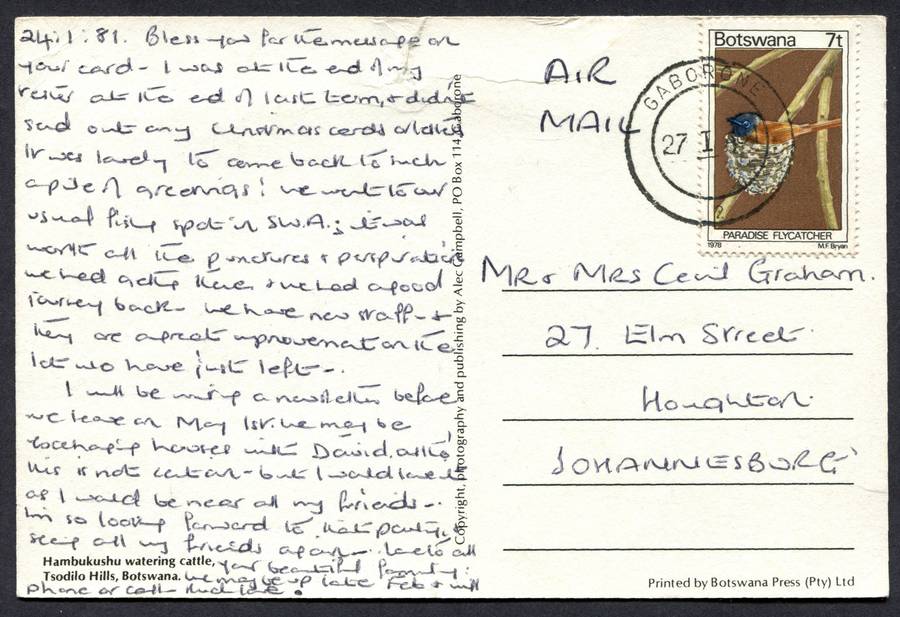 24:1:81. Bless you for the message on
your card - I was at the end of my
at the end of last term, & didn't
send out any Christmas cards
It was lovely to come back to such
a pile of greetings! We went to our
usual fishing spot in S.W.A.; it was
worth all the punctures & perspiration
we had & we had a good
journey back - we have new staff - &
they are a great improvement on the
lot who have just left -.
I will be writing a newsletter before
we leave on May 1st. We may be
exchanging houses with David, altho'
this is not certain - but I would love it
as I would be near all my friends -.
I'm so looking forward to that party, &
seeing all my friends again -. Love to all
your beautiful family:
we may be up late Feb & will
phone or call. Much love.
Hambukushu watering cattle,
Tsodilo Hills, Botswana.
Copyright, photography and publishing by Alec Campbell, PO Box 114, Gaborone
AIR
MAIL
GABORONE
27 I
Botswana 7t
PARADISE FLYCATCHER
1978 M.F. Bryan
Mr & Mrs Cecil Graham.
27. Elm Street.
Houghton.
JOHANNESBURG
Printed by Botswana Press (Pty) Ltd